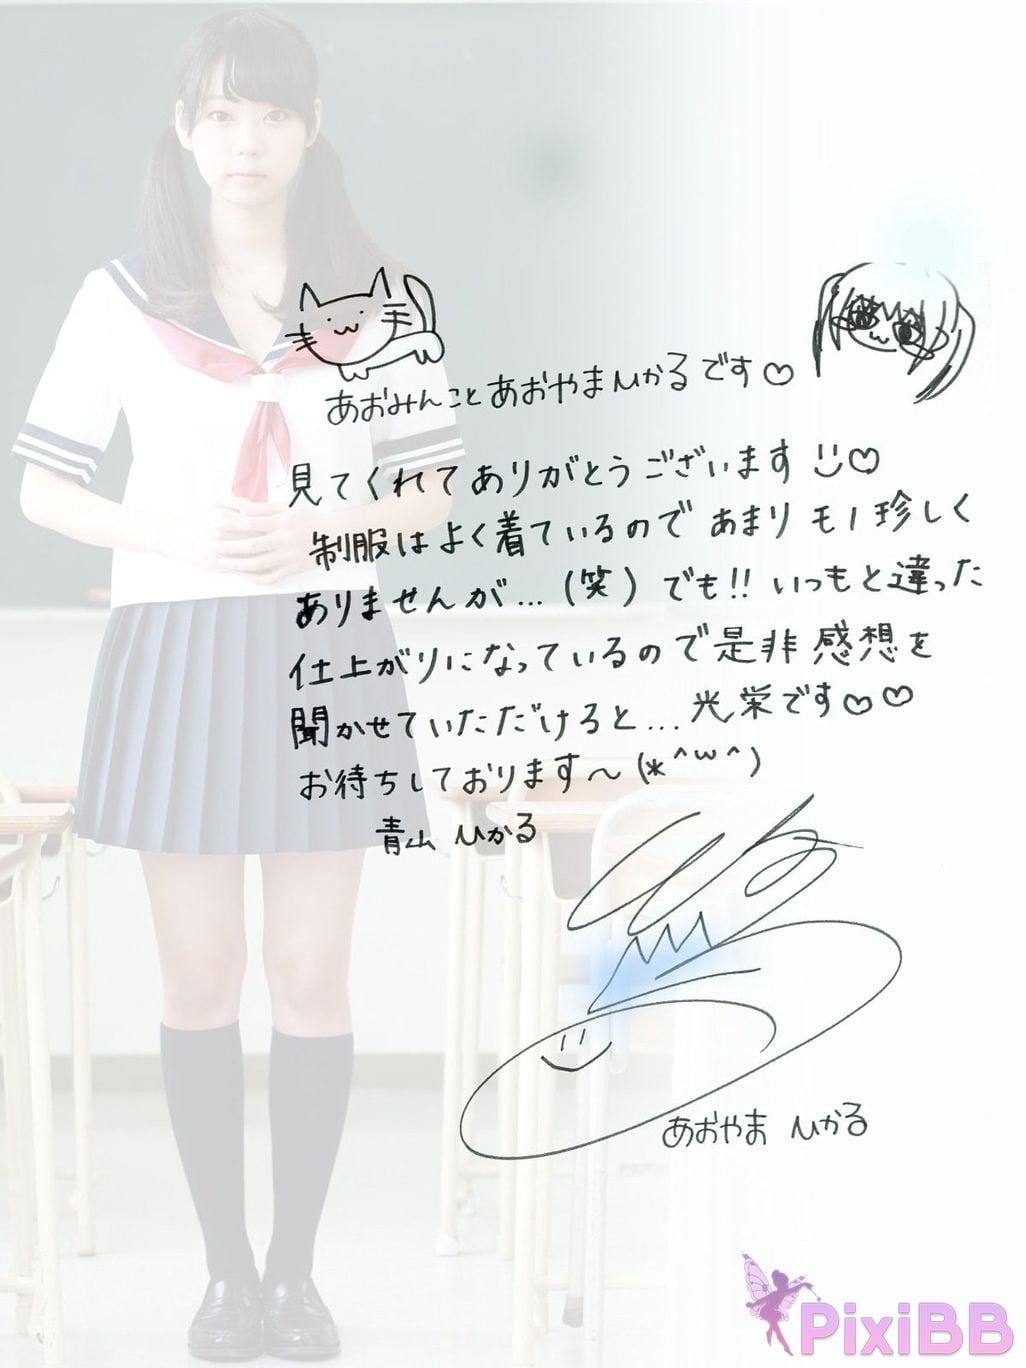 あおみんことあおやまひかるです♡
見てくれてありがとうございます♡
制服はよく着ているのであまりモノ珍しく
ありませんが…(笑)でも!!いつもと違った
仕上がりになっているので是非感想を
聞かせていただけると…光栄です♡♡
お待ちしております〜(*^w^)
青山ひかる
あおやま ひかる
PixiBB